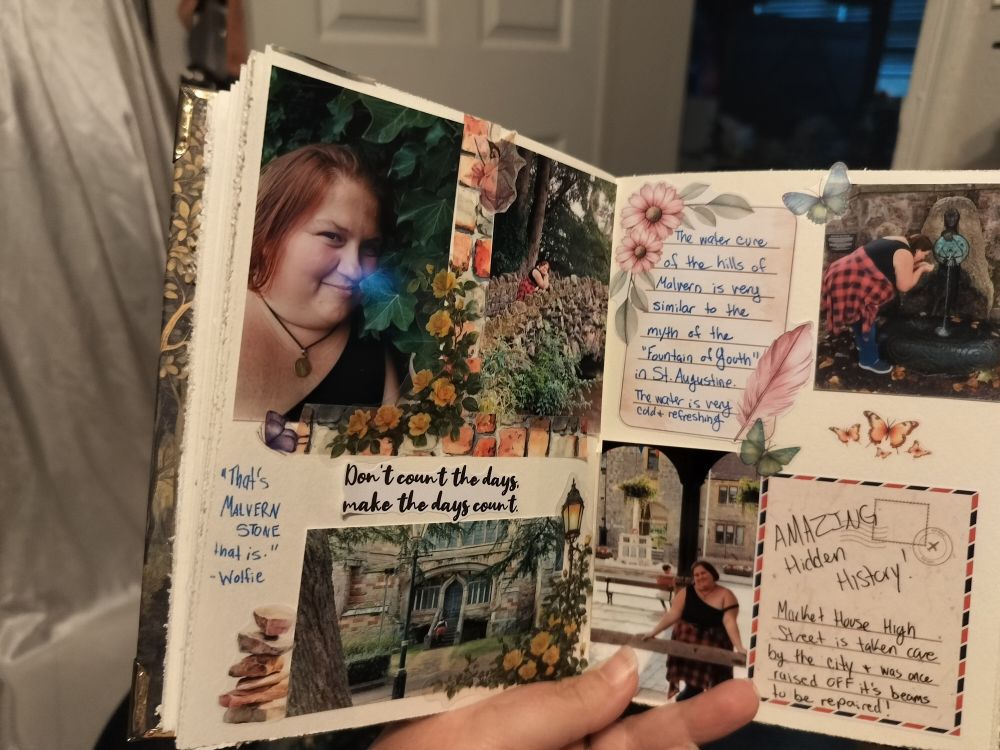 "That's
MALVERN
STONE
that is."
-Wolfie
Don't count the days,
make the days count.
The water cure
of the hills of
Malvern is very
similar to the
myth of the
"Fountain of Youth"
in St. Augustine.
The water is very
cold + refreshing
AMAZING
Hidden
History!
Market House High
Street is taken care
by the city + was once
raised OFF it's beams
to be repaired!